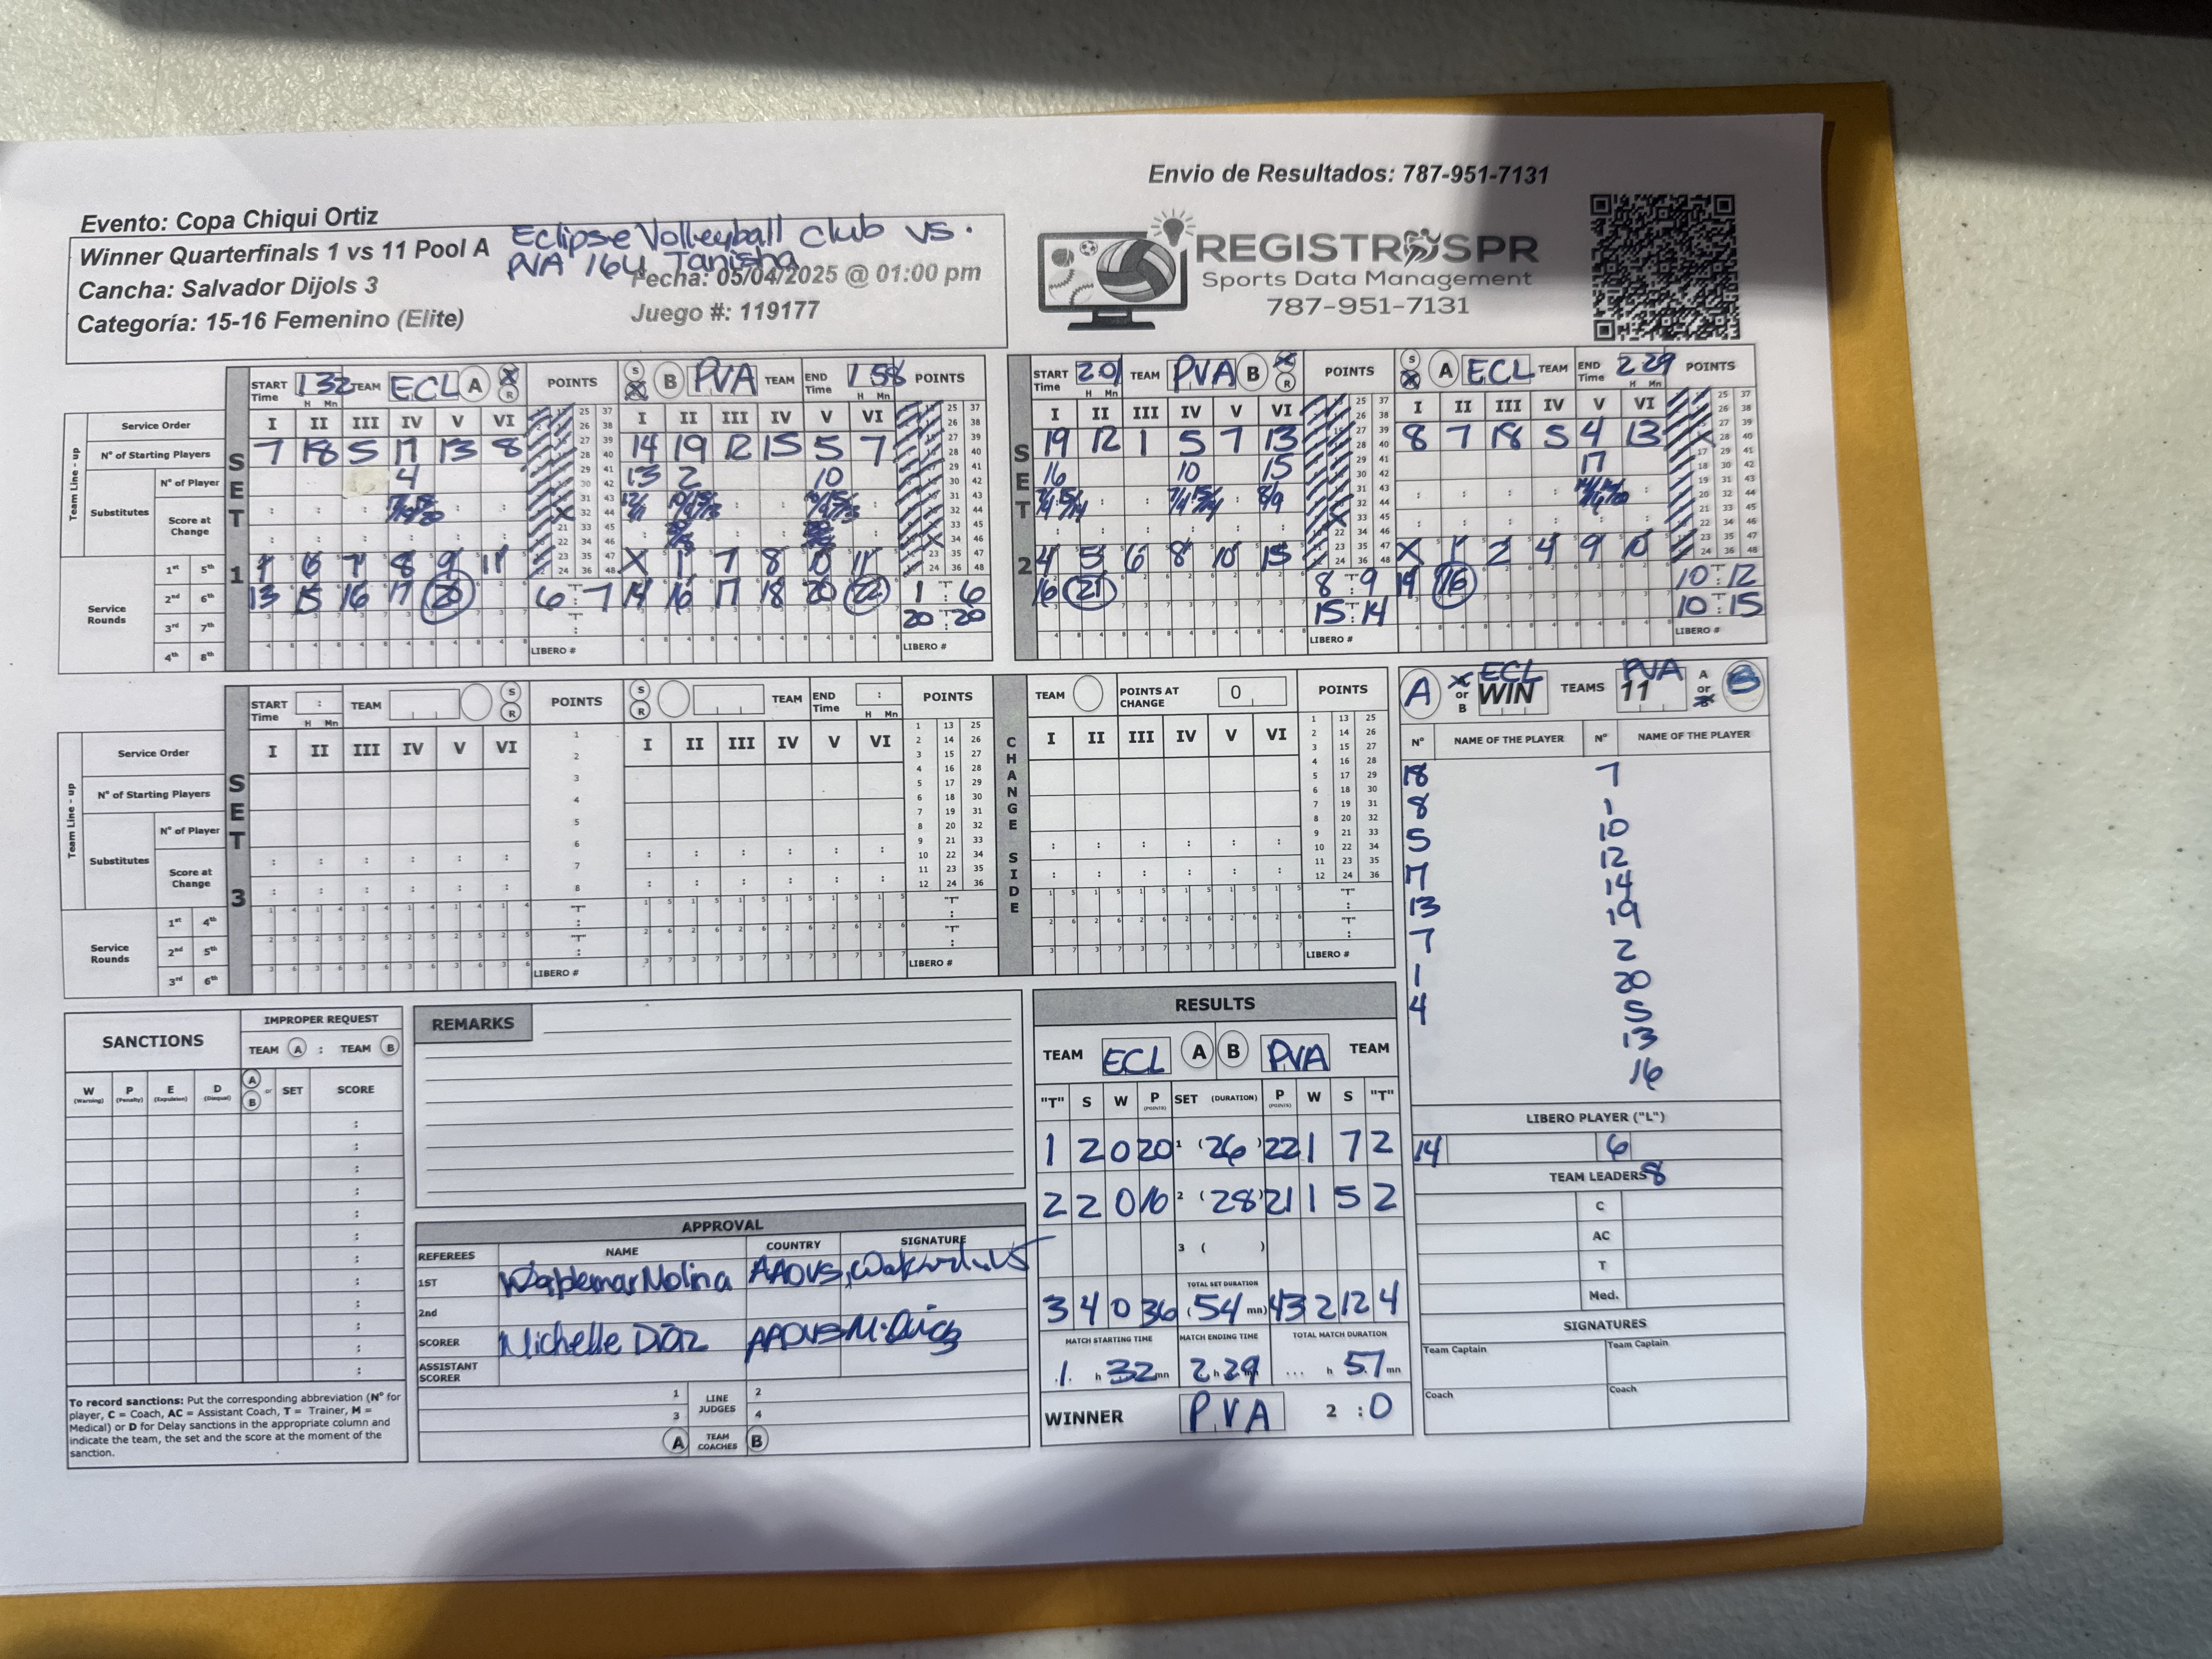 Envio de Resultados: 787-951-7131
Evento: Copa Chiqui Ortiz
Winner Quarterfinals 1 vs 11 Pool A
Eclipse Volleyball Club vs.
PVA 16U Tanisha
Cancha: Salvador Dijols 3
Fecha: 05/04/2025 @ 01:00 pm
Categoría: 15-16 Femenino (Elite)
Juego #: 119177
REGISTROSPR
Sports Data Management
787-951-7131
START Time 1 32 TEAM ECL A S R POINTS S R B PVA TEAM END Time 1 58 POINTS
H Mn
Service Order I II III IV V VI I II III IV V VI
Team Line - up
N° of Starting Players 7 18 5 17 13 8 14 19 12 15 5 7
Substitutes N° of Player 4 13 2 10
Score at Change
SET 1
Service Rounds
1st 5th 1 6 7 8 9 11 X 1 7 8 10 11
2nd 6th 13 15 16 17 20 6 : 7 14 16 17 18 20 22 1 : 6
3rd 7th 20 : 20
4th 8th LIBERO # LIBERO #
START Time 2 01 TEAM PVA B S R POINTS S R A ECL TEAM END Time 2 29 POINTS
I II III IV V VI I II III IV V VI
19 12 1 5 7 13 8 7 18 5 4 13
16 10 15 17
SET 2
4 5 6 8 10 15 X 1 2 4 9 10
16 21 8 : 9 14 16 10 : 12
15 : 14 10 : 15
LIBERO # LIBERO #
START Time : TEAM S R POINTS S R TEAM END Time : POINTS
H Mn
Service Order I II III IV V VI I II III IV V VI
Team Line - up
N° of Starting Players
Substitutes N° of Player
Score at Change
SET 3
Service Rounds
1st 4th
2nd 5th
3rd 6th
LIBERO # LIBERO #
CHANGE SIDE
TEAM POINTS AT CHANGE 0 POINTS
I II III IV V VI
LIBERO #
A or B ECL WIN TEAMS PVA 11 A or B
N° NAME OF THE PLAYER N° NAME OF THE PLAYER
18 7
8 1
5 10
17 12
13 14
7 19
1 2
4 20
5
13
16
LIBERO PLAYER ("L")
14 6
TEAM LEADERS 8
C
AC
T
Med.
SIGNATURES
Team Captain Team Captain
Coach Coach
SANCTIONS
IMPROPER REQUEST
TEAM A : TEAM B
W (Warning) P (Penalty) E (Expulsion) D (Disqual) A or B SET SCORE
To record sanctions: Put the corresponding abbreviation (N° for
player, C = Coach, AC = Assistant Coach, T = Trainer, M =
Medical) or D for Delay sanctions in the appropriate column and
indicate the team, the set and the score at the moment of the
sanction.
REMARKS
APPROVAL
REFEREES NAME COUNTRY SIGNATURE
1ST Waldemar Molina AAOVS
2nd
SCORER Michelle Díaz AAOVS M. Díaz
ASSISTANT SCORER
1 LINE JUDGES 2
3 4
A TEAM COACHES B
RESULTS
TEAM ECL A B PVA TEAM
"T" S W P (POINTS) SET (DURATION) P (POINTS) W S "T"
1 2 0 20 1 (26) 22 1 7 2
2 2 0 16 2 (28) 21 1 5 2
3 ( )
TOTAL SET DURATION
3 4 0 36 (54 mn) 43 2 12 4
MATCH STARTING TIME MATCH ENDING TIME TOTAL MATCH DURATION
1 h 32 mn 2 h 29 h 57 mn
WINNER PVA 2 : 0